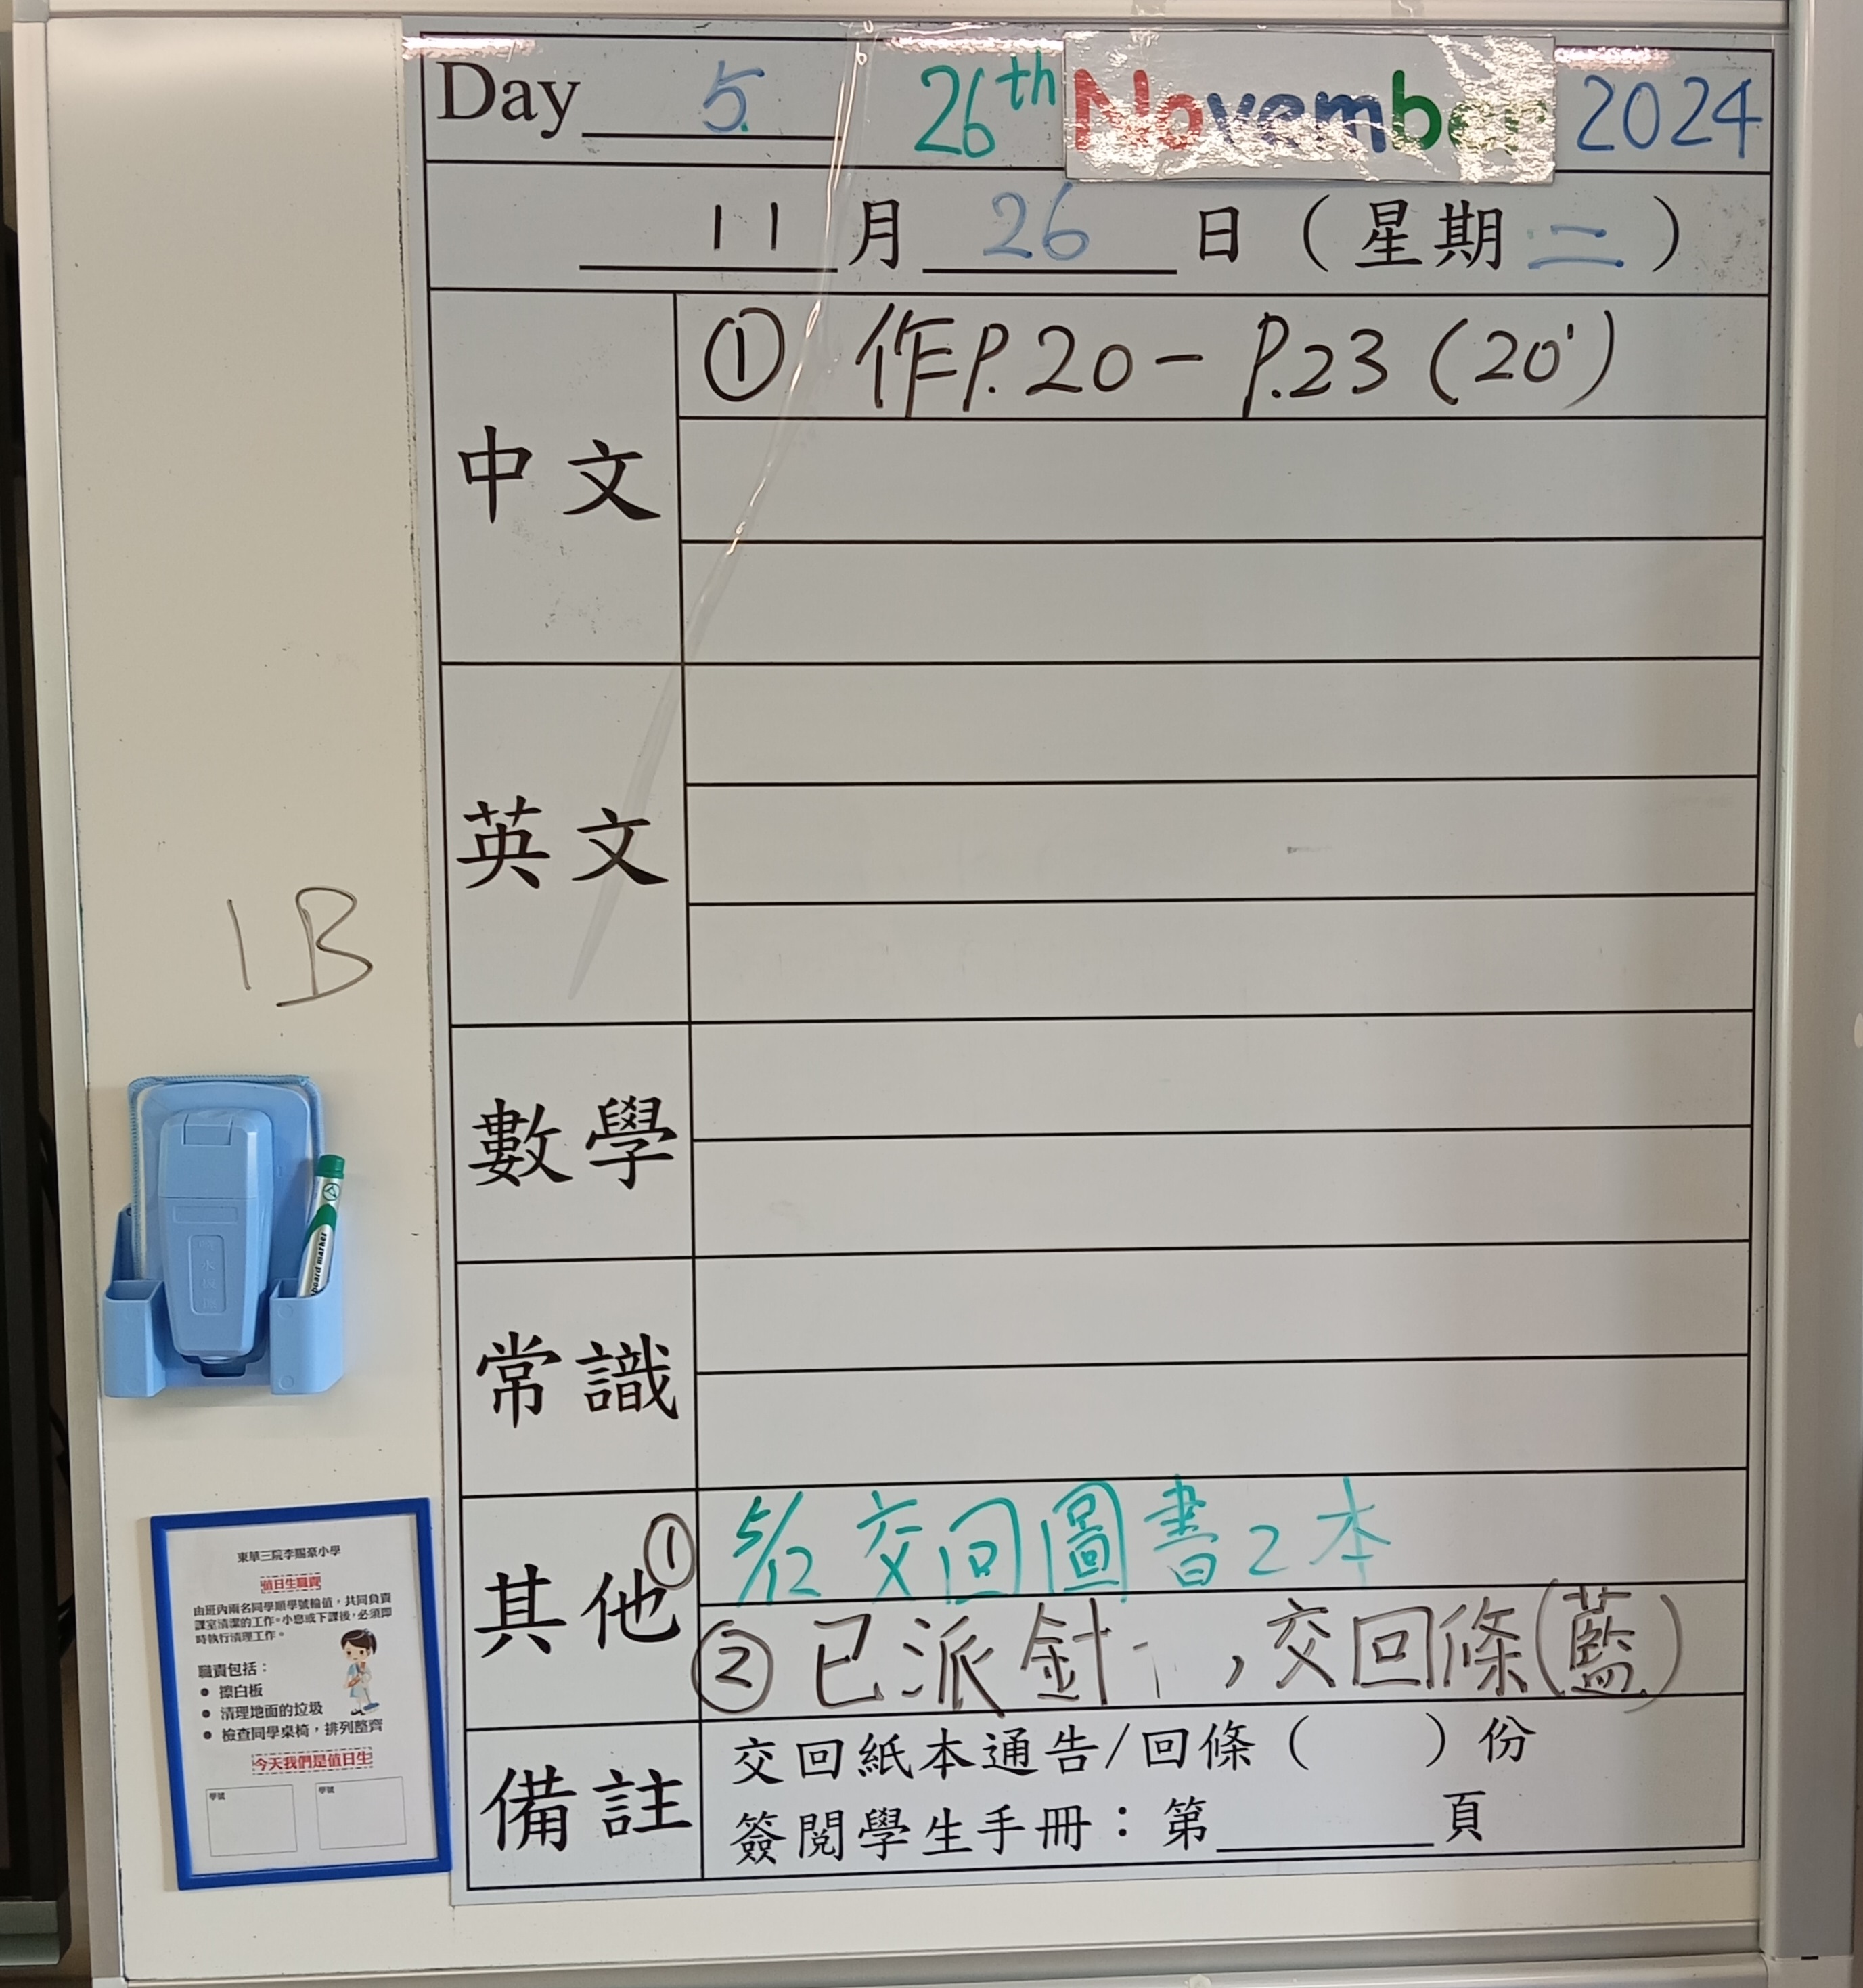 Day 5 26th November 2024
11 月 26 日 ( 星期 二 )
中文
① 作P.20 - P.23 (20')
英文
數學
常識
其他
① 5/12 交回圖書2本
② 已派針 , 交回條(藍)
備註
交回紙本通告/回條 ( ) 份
簽閱學生手冊：第______頁
1B
board marker
東華三院李賜豪小學
值日生職責
由班內兩名同學順學號輪值，共同負責
課室清潔的工作。小息或下課後，必須即
時執行清理工作。
職責包括：
• 擦白板
• 清理地面的垃圾
• 檢查同學桌椅，排列整齊
今天我們是值日生
學號 學號